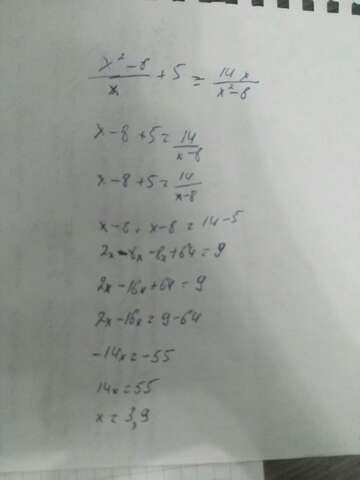 x² - 8 / x + 5 = 14x / x² - 8
x - 8 + 5 = 14 / x - 8
x - 8 + 5 = 14 / x - 8
x - 8 + x - 8 = 14 - 5
2x - 8x - 8x + 64 = 9
2x - 16x + 64 = 9
2x - 16x = 9 - 64
-14x = -55
14x = 55
x = 3,9